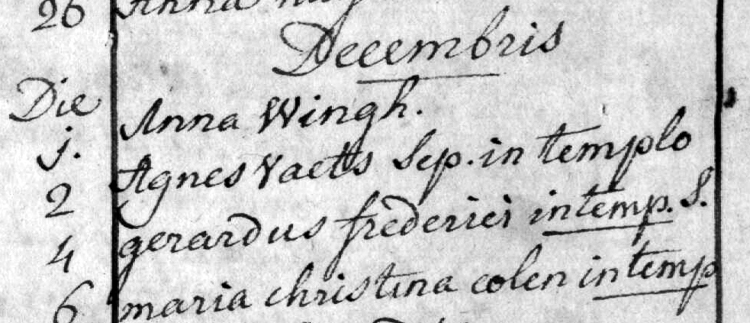 26 Anna
Decembris
Die
j. Anna Wingh.
2 Agnes Vaets Sep. in templo
4 gerardus frederici in temp. S.
6 maria christina colen in temp